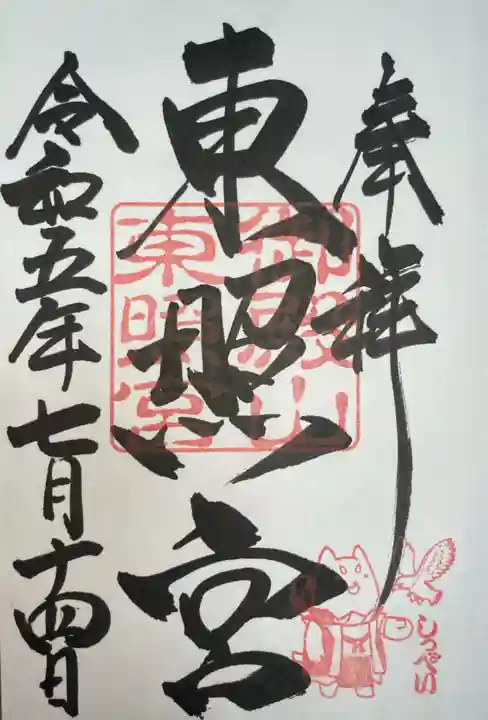 奉拝
東照宮
御殿山
東照宮
令和五年七月十四日
しっぺい